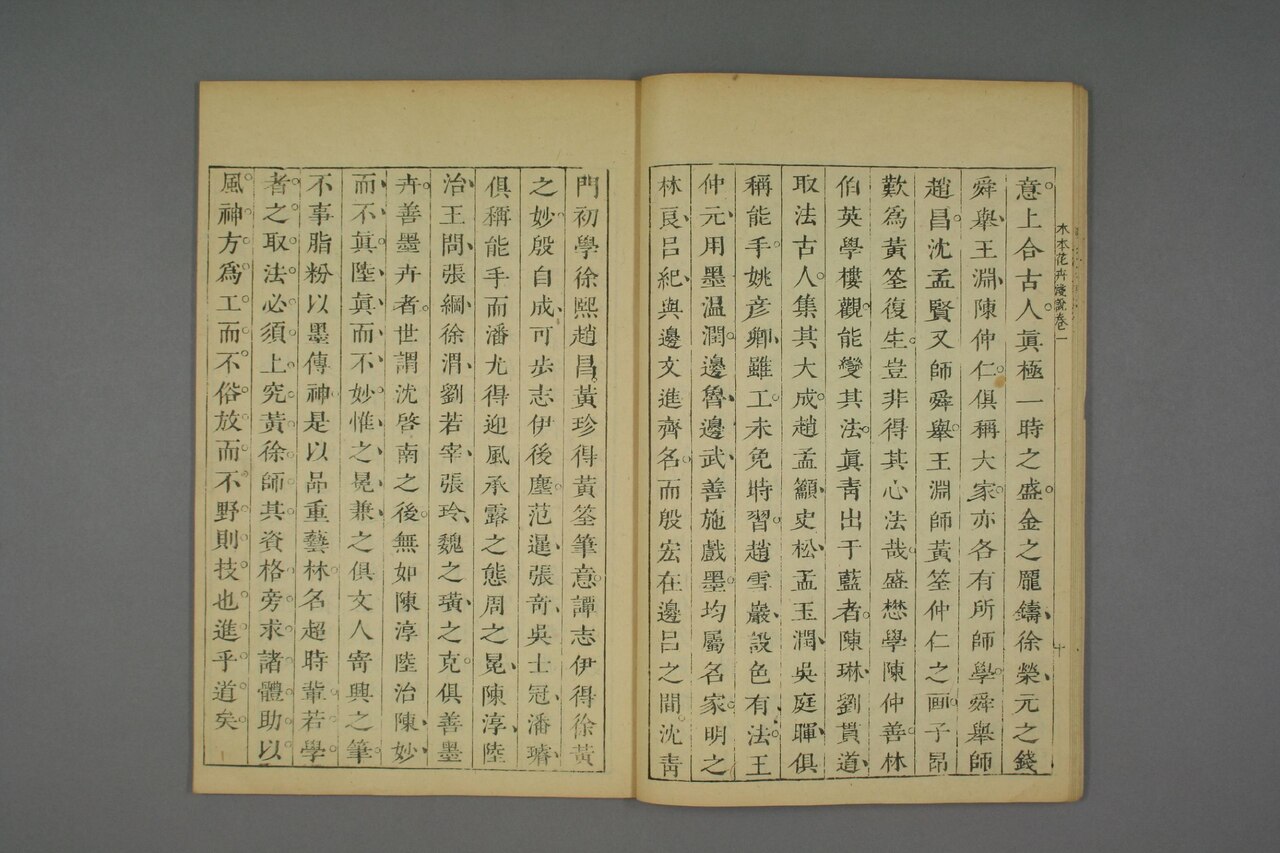 意上合古人眞極一時之盛金之龎鑄徐榮元之錢
舜舉王淵陳仲仁俱稱大家亦各有所師學舜舉師
趙昌沈孟賢又師舜舉王淵師黃筌仲仁之画子昂
歎爲黃筌復生豈非得其心法哉盛懋學陳仲善林
伯英學樓觀能變其法眞靑出于藍者陳琳劉貫道
取法古人集其大成趙孟籲史松孟玉澗吳庭暉俱
稱能手姚彦卿雖工未免時習趙雪巖設色有法王
仲元用墨温潤邊魯邊武善施戲墨均屬名家明之
林良呂紀與邊文進齊名而殷宏在邊呂之間沈靑
門初學徐熙趙昌黃珍得黃筌筆意譚志伊得徐黃
之妙殷自成可步志伊後塵范暹張奇吳士冠潘璿
俱稱能手而潘尤得迎風承露之態周之冕陳淳陸
治王問張綱徐渭劉若宰張玲魏之璜之克俱善墨
卉善墨卉者世謂沈啓南之後無如陳淳陸治陳妙
而不眞陸眞而不妙惟之冕兼之俱文人寄興之筆
不事脂粉以墨傳神是以品重藝林名超時輩若學
者之取法必須上究黃徐師其資格旁求諸體助以
風神方爲工而不俗放而不野則技也進乎道矣
木本花卉淺說卷一
十